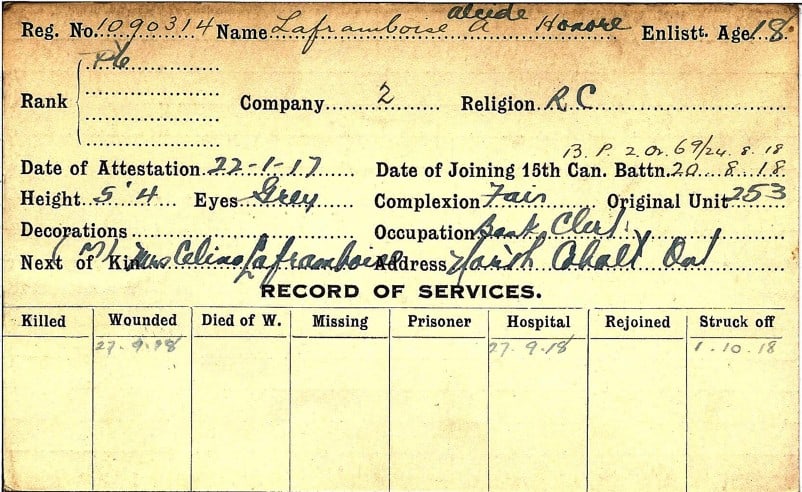 alcide
Reg. No. 1090314 Name Laframboise A Honore Enlistt. Age 18
Pte
Rank Company 2 Religion R C
B. P. 2. Or. 69/24. 8. 18
Date of Attestation 22-1-17 Date of Joining 15th Can. Battn. 20 8. 18
Height 5' 4 Eyes Grey Complexion Fair Original Unit 253
Decorations Occupation Bank Clerk
Next of Kin (M) Mrs Celina Laframboise Address North Cobalt Ont
RECORD OF SERVICES.
Killed Wounded Died of W. Missing Prisoner Hospital Rejoined Struck off
27. 9. 18 27. 9. 18 1. 10. 18